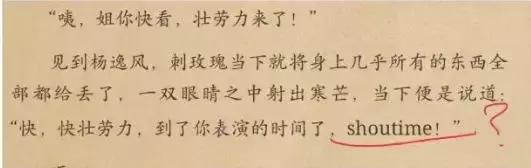 “咦，姐你快看，壮劳力来了！”
见到杨逸风，刺玫瑰当下就将身上几乎所有的东西全
部都给丢了，一双眼睛之中射出寒芒，当下便是说道：
“快，快壮劳力，到了你表演的时间了，shoutime！”?